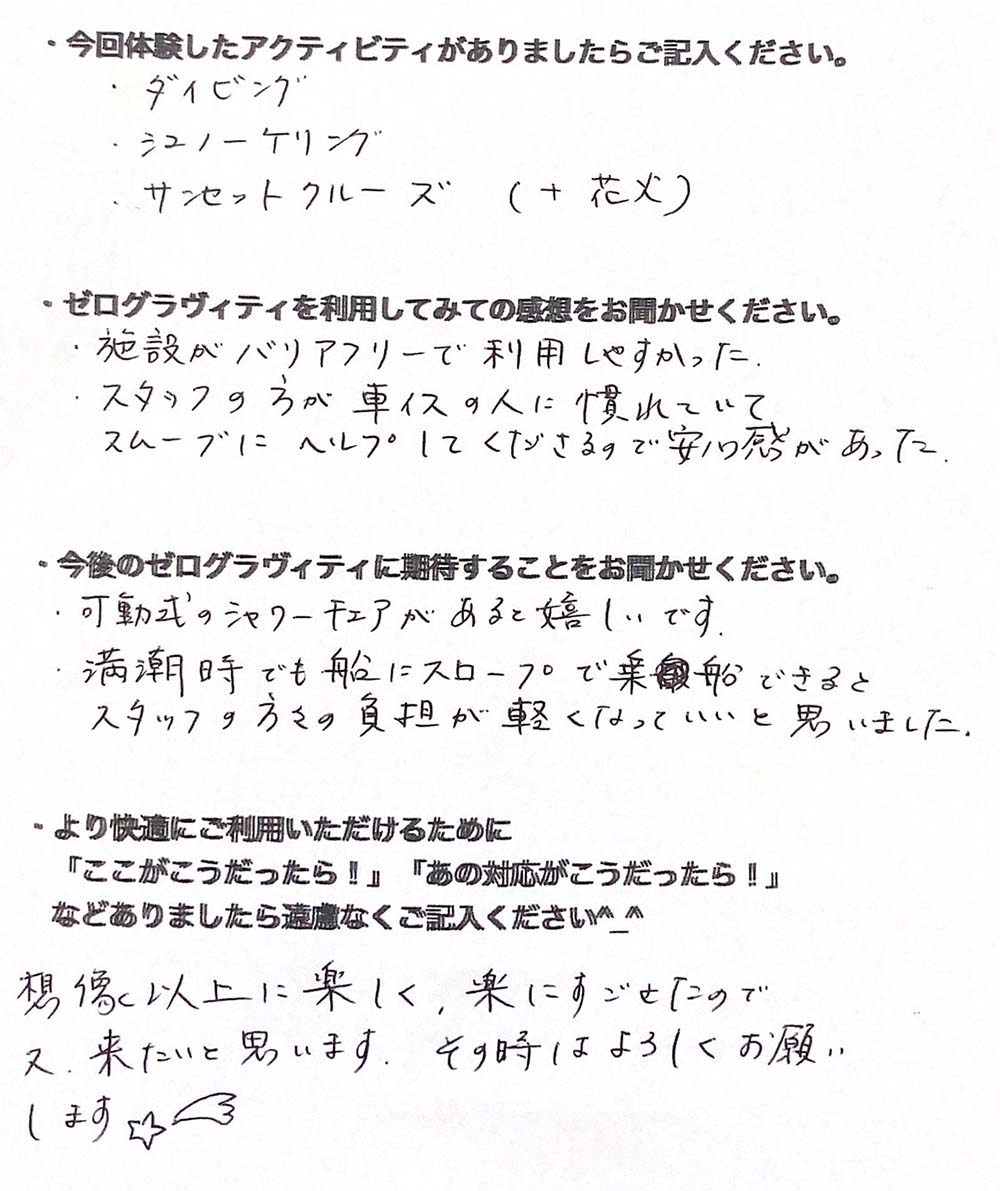 ・今回体験したアクティビティがありましたらご記入ください。
・ダイビング
・シュノーケリング
・サンセットクルーズ （＋花火）
・ゼログラヴィティを利用してみての感想をお聞かせください。
・施設がバリアフリーで利用しやすかった.
・スタッフの方が車イスの人に慣れていて
スムーブにヘルプしてくださるので安心感があった.
・今後のゼログラヴィティに期待することをお聞かせください。
・可動式のシャワーチェアがあると嬉しいです.
・満潮時でも船にスロープで乗船できると
スタッフの方々の負担が軽くなっていいと思いました.
・より快適にご利用いただけるために
「ここがこうだったら！」「あの対応がこうだったら！」
などありましたら遠慮なくご記入ください^_^
想像以上に楽しく, 楽にすごせたので
又. 来たいと思います. その時はよろしくお願い
します